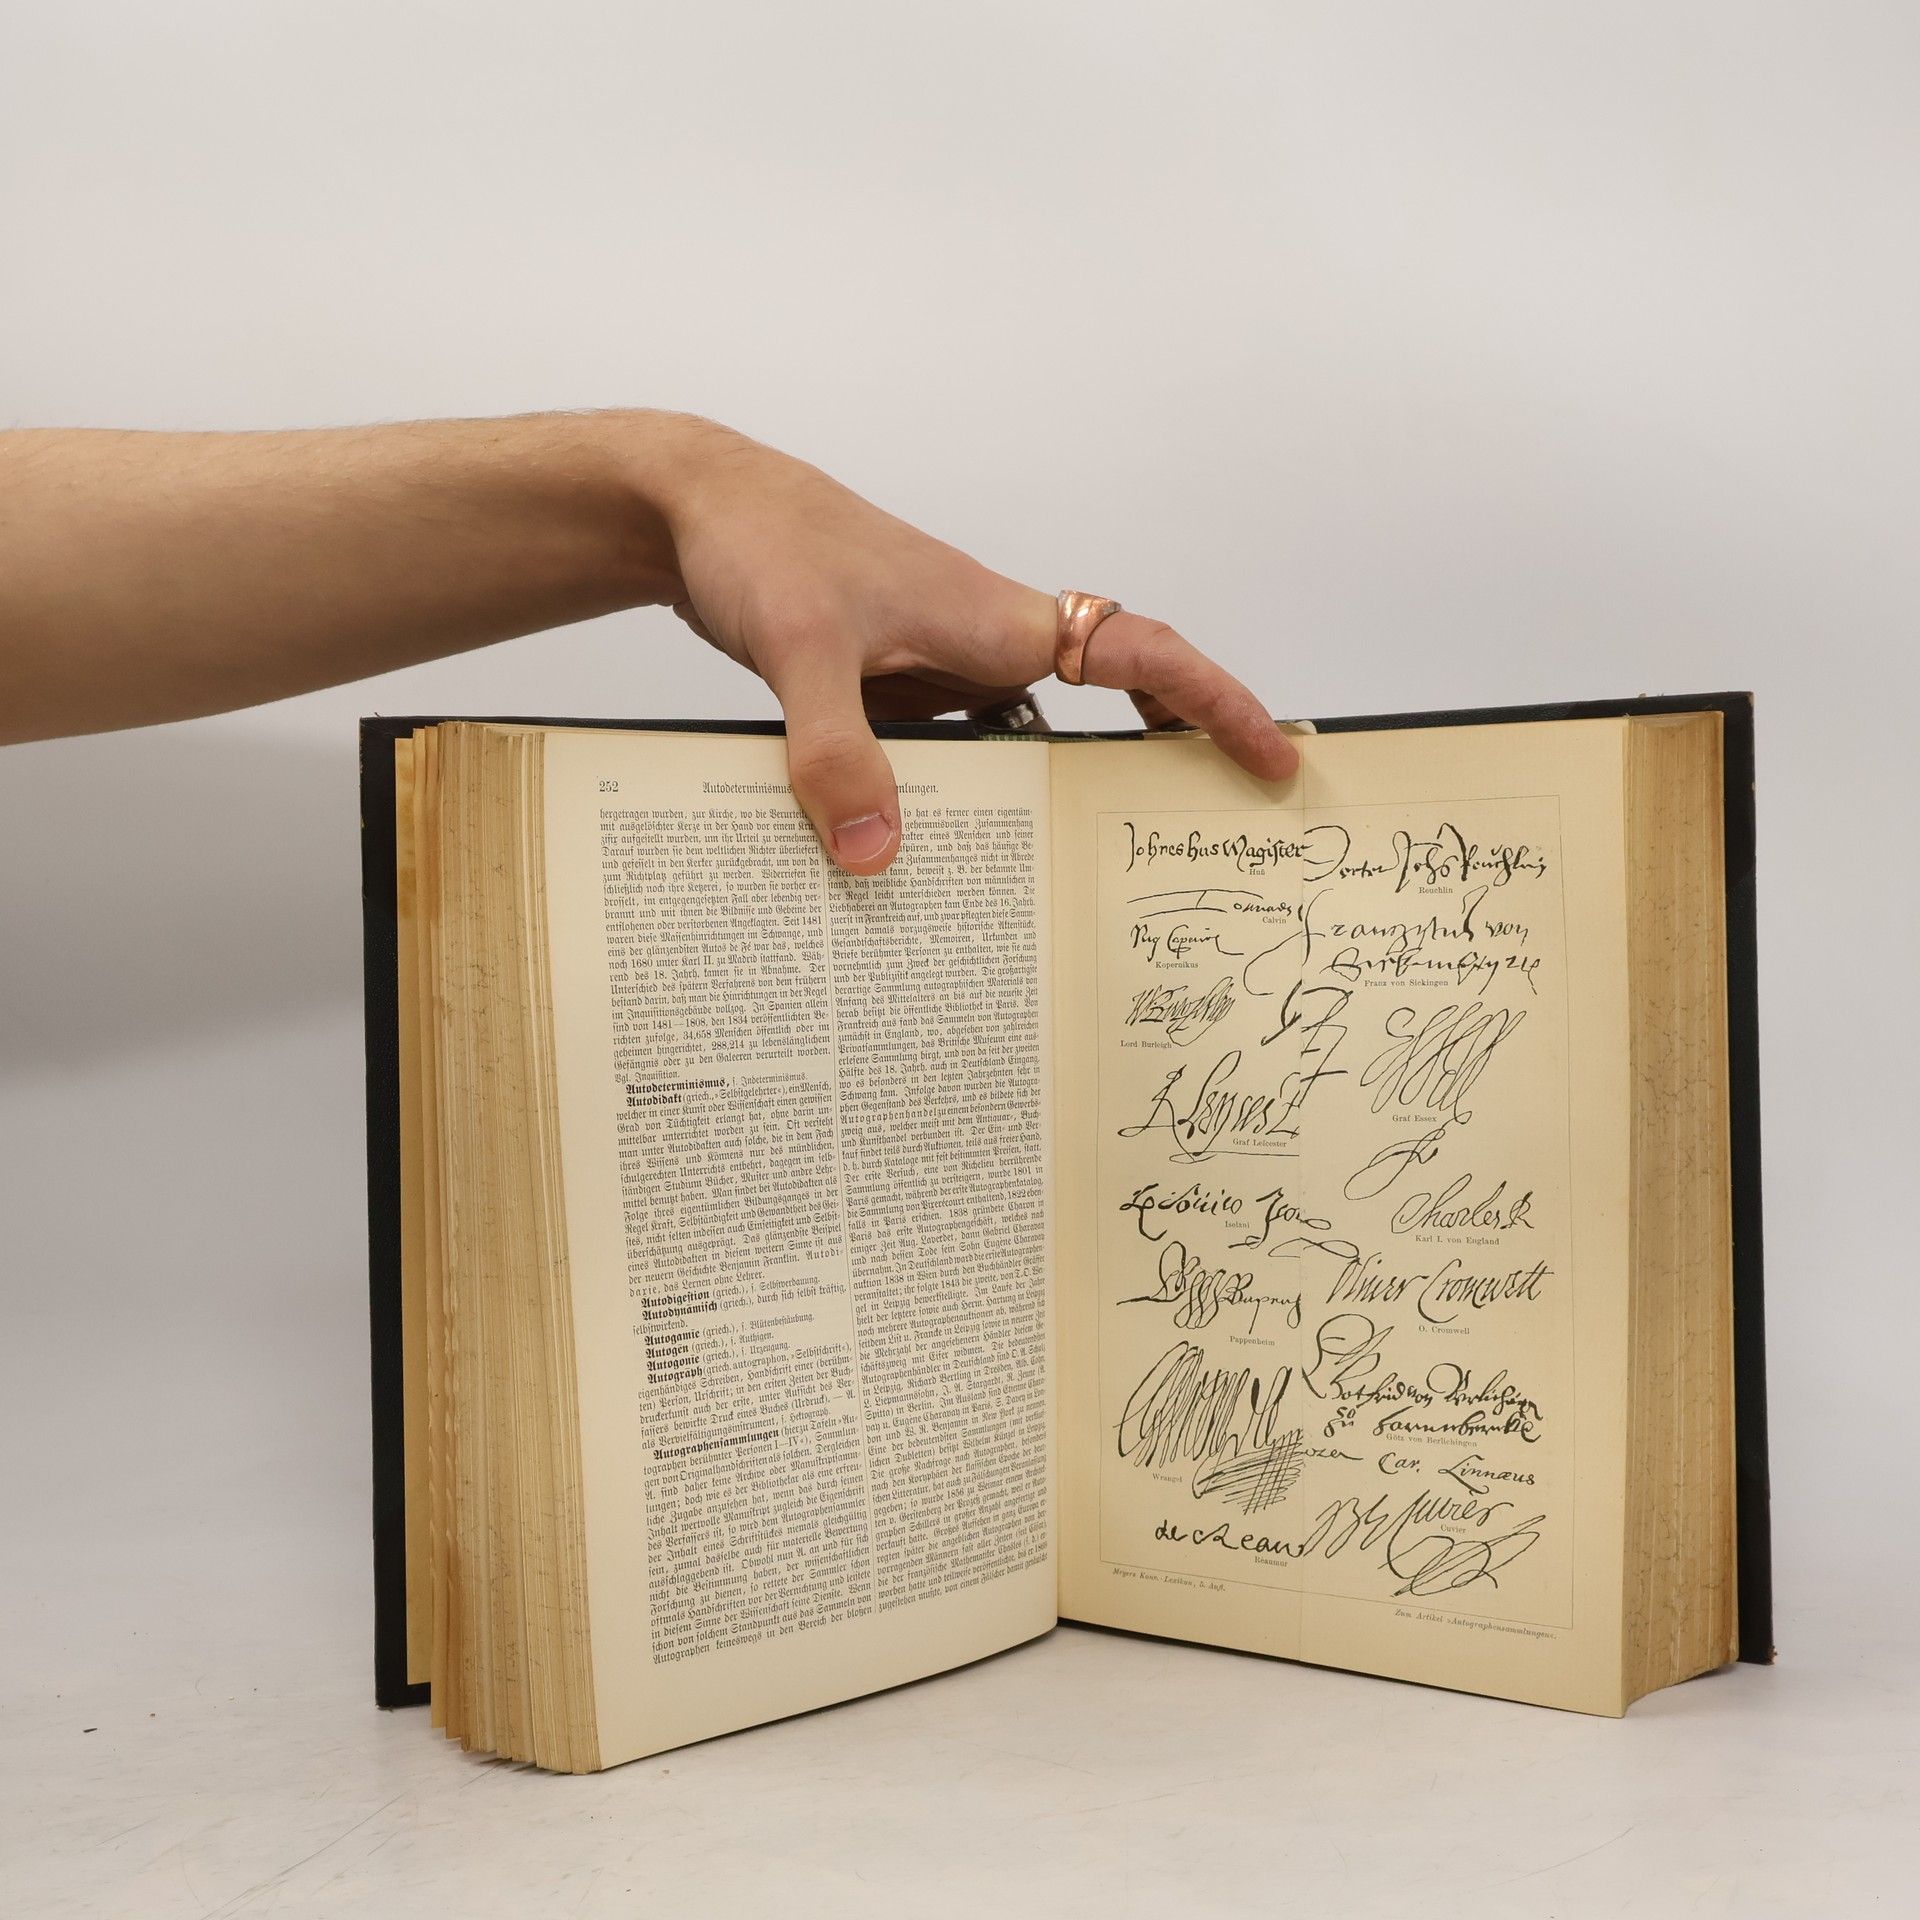 252
Autodeterminismus mlungen.
hergetragen wurden, zur Kirche, wo die Verurteil
mit ausgelöschter Kerze in der Hand vor einem Kru
zifix aufgestellt wurden, um ihr Urteil zu vernehmen.
Darauf wurden sie dem weltlichen Richter überliefert
und gefesselt in den Kerker zurückgebracht, um von da
zum Richtplatz geführt zu werden. Widerriefen sie
schließlich noch ihre Ketzerei, so wurden sie vorher er-
drosselt, im entgegengesetzten Fall aber lebendig ver-
brannt und mit ihnen die Bildnisse und Gebeine der
entflohenen oder verstorbenen Angeklagten. Seit 1481
waren diese Massenhinrichtungen im Schwange, und
eins der glänzendsten Autos de Fé war das, welches
noch 1680 unter Karl II. zu Madrid stattfand. Wäh-
rend des 18. Jahrh. kamen sie in Abnahme. Der
Unterschied des spätern Verfahrens von dem frühern
bestand darin, daß man die Hinrichtungen in der Regel
im Inquisitionsgebäude vollzog. In Spanien allein
sind von 1481—1808, den 1834 veröffentlichten Be-
richten zufolge, 34,658 Menschen öffentlich oder im
geheimen hingerichtet, 288,214 zu lebenslänglichem
Gefängnis oder zu den Galeeren verurteilt worden.
Vgl. Inquisition.
Autodeterminismus, s. Indeterminismus.
Autodidakt (griech., »Selbstgelehrter«), ein Mensch,
welcher in einer Kunst oder Wissenschaft einen gewissen
Grad von Tüchtigkeit erlangt hat, ohne darin un-
mittelbar unterrichtet worden zu sein. Oft versteht
man unter Autodidakten auch solche, die in dem Fach
ihres Wissens und Könnens nur des mündlichen,
schulgerechten Unterrichts entbehrt, dagegen im selb-
ständigen Studium Bücher, Muster und andre Lehr-
mittel benutzt haben. Man findet bei Autodidakten als
Folge ihres eigentümlichen Bildungsganges in der
Regel Kraft, Selbständigkeit und Gewandtheit des Gei-
stes, nicht selten indessen auch Einseitigkeit und Selbst-
überschätzung ausgeprägt. Das glänzendste Beispiel
eines Autodidakten in diesem weitern Sinne ist aus
der neuern Geschichte Benjamin Franklin. Autodi-
daxie, das Lernen ohne Lehrer.
Autodigestion (griech.), s. Selbstverdauung.
Autodynamisch (griech.), durch sich selbst kräftig,
selbstwirkend.
Autogamie (griech.), s. Blütenbestäubung.
Autogen (griech.), s. Authigen.
Autogonie (griech.), s. Urzeugung.
Autograph (griech. autographon, »Selbstschrift«),
eigenhändiges Schreiben, Handschrift einer (berühm-
ten) Person, Urschrift; in den ersten Zeiten der Buch-
druckerkunst auch der erste, unter Aufsicht des Ver-
fassers bewirkte Druck eines Buches (Urdruck). — A.
als Vervielfältigungsinstrument, s. Hektograph.
Autographensammlungen (hierzu Tafeln »Au-
tographen berühmter Personen I—IV«), Sammlun-
gen von Originalhandschriften als solchen. Dergleichen
A. sind daher keine Archive oder Manuskriptsamm-
lungen; doch wie es der Bibliothek als eine erfreu-
liche Zugabe anzusehen hat, wenn das durch seinen
Inhalt wertvolle Manuskript zugleich die Eigenschrift
des Verfassers ist, so wird dem Autographensammler
der Inhalt eines Schriftstückes niemals gleichgültig
sein, zumal dasselbe auch für materielle Bewertung
ausschlaggebend ist. Obwohl nun A. an und für sich
nicht die Bestimmung haben, der wissenschaftlichen
Forschung zu dienen, so rettete der Sammler schon
oftmals Handschriften vor der Vernichtung und leistete
in diesem Sinne der Wissenschaft seine Dienste. Wenn
schon von solchem Standpunkt aus das Sammeln von
Autographen keineswegs in den Bereich der bloßen
so hat es ferner einen eigentüm-
geheimnisvollen Zusammenhang
rakter eines Menschen und seiner
spüren, und daß das häufige Be-
en Zusammenhanges nicht in Abrede
gestellt kann, beweist z. B. der bekannte Um-
stand, daß weibliche Handschriften von männlichen in
der Regel leicht unterschieden werden können. Die
Liebhaberei an Autographen kam Ende des 16. Jahrh.
zuerst in Frankreich auf, und zwar pflegten diese Samm-
lungen damals vorzugsweise historische Aktenstücke,
Gesandtschaftsberichte, Memoiren, Urkunden und
Briefe berühmter Personen zu enthalten, wie sie auch
vornehmlich zum Zweck der geschichtlichen Forschung
und der Publizistik angelegt wurden. Die großartigste
derartige Sammlung autographischen Materials von
Anfang des Mittelalters an bis auf die neueste Zeit
herab besitzt die öffentliche Bibliothek in Paris. Von
Frankreich aus fand das Sammeln von Autographen
zunächst in England, wo, abgesehen von zahlreichen
Privatsammlungen, das Britische Museum eine aus-
erlesene Sammlung birgt, und von da seit der zweiten
Hälfte des 18. Jahrh. auch in Deutschland Eingang,
wo es besonders in den letzten Jahrzehnten sehr in
Schwang kam. Infolge davon wurden die Autogra-
phen Gegenstand des Verkehrs, und es bildete sich der
Autographenhandel zu einem besondern Gewerbs-
zweig aus, welcher meist mit dem Antiquar-, Buch-
und Kunsthandel verbunden ist. Der Ein- und Ver-
kauf findet teils durch Auktionen, teils aus freier Hand,
d. h. durch Kataloge mit fest bestimmten Preisen, statt.
Der erste Versuch, eine von Richelieu herrührende
Sammlung öffentlich zu versteigern, wurde 1801 in
Paris gemacht, während der erste Autographenkatalog,
die Sammlung von Pixerécourt enthaltend, 1822 eben-
falls in Paris erschien. 1838 gründete Charon in
Paris das erste Autographengeschäft, welches nach
einiger Zeit Aug. Laverdet, dann Gabriel Charavay
und nach dessen Tode sein Sohn Eugène Charavay
übernahm. In Deutschland ward die erste Autographen-
auktion 1838 in Wien durch den Buchhändler Gräffer
veranstaltet; ihr folgte 1843 die zweite, von T. O. Wei-
gel in Leipzig bewerkstelligte. Im Laufe der Jahre
hielt der letztere sowie auch Herm. Hartung in Leipzig
noch mehrere Autographenauktionen ab, während sich
seitdem List u. Francke in Leipzig sowie in neuerer Zeit
die Mehrzahl der angesehenern Händler diesem Ge-
schäftszweig mit Eifer widmen. Die bedeutendsten
Autographenhändler in Deutschland sind O. A. Schulz
in Leipzig, Richard Bertling in Dresden, Alb. Cohn,
L. Liepmannssohn, J. A. Stargardt, R. Zeune (A.
Spitta) in Berlin. Im Ausland sind Etienne Chara-
vay u. Eugène Charavay in Paris, S. Davey in Lon-
don und W. R. Benjamin in New York zu nennen.
Eine der bedeutendsten Sammlungen (mit verkäuf-
lichen Dubletten) besitzt Wilhelm Künzel in Leipzig.
Die große Nachfrage nach Autographen, besonders
nach den Koryphäen der klassischen Epoche der deut-
schen Litteratur, hat auch zu Fälschungen Veranlassung
gegeben; so wurde 1856 zu Weimar einem Architek-
ten v. Gerstenberg der Prozeß gemacht, weil er Auto-
graphen Schillers in großer Anzahl angefertigt und
verkauft hatte. Großes Aufsehen in ganz Europa er-
regten später die angeblichen Autographen von her-
vorragenden Männern fast aller Zeiten (seit Cäsar),
die der französische Mathematiker Chasles (s. d.) er-
worben hatte und teilweise veröffentlichte, bis er 1869
zugestehen mußte, von einem Fälscher damit getäuscht
Johnes hus Magister
Huß
Reuchlin
Calvin
Kopernikus
Franz von Sickingen
Lord Burleigh
Graf Essex
Graf Leicester
Isolani
Charles R
Karl I. von England
Pappenheim
Oliver Cromwell
O. Cromwell
Götz von Berlichingen
Wrangel
Car. Linnæus
Cuvier
Cuvier
de Reau
Réaumur
Meyers Konv.-Lexikon, 5. Aufl.
Zum Artikel »Autographensammlungen«.